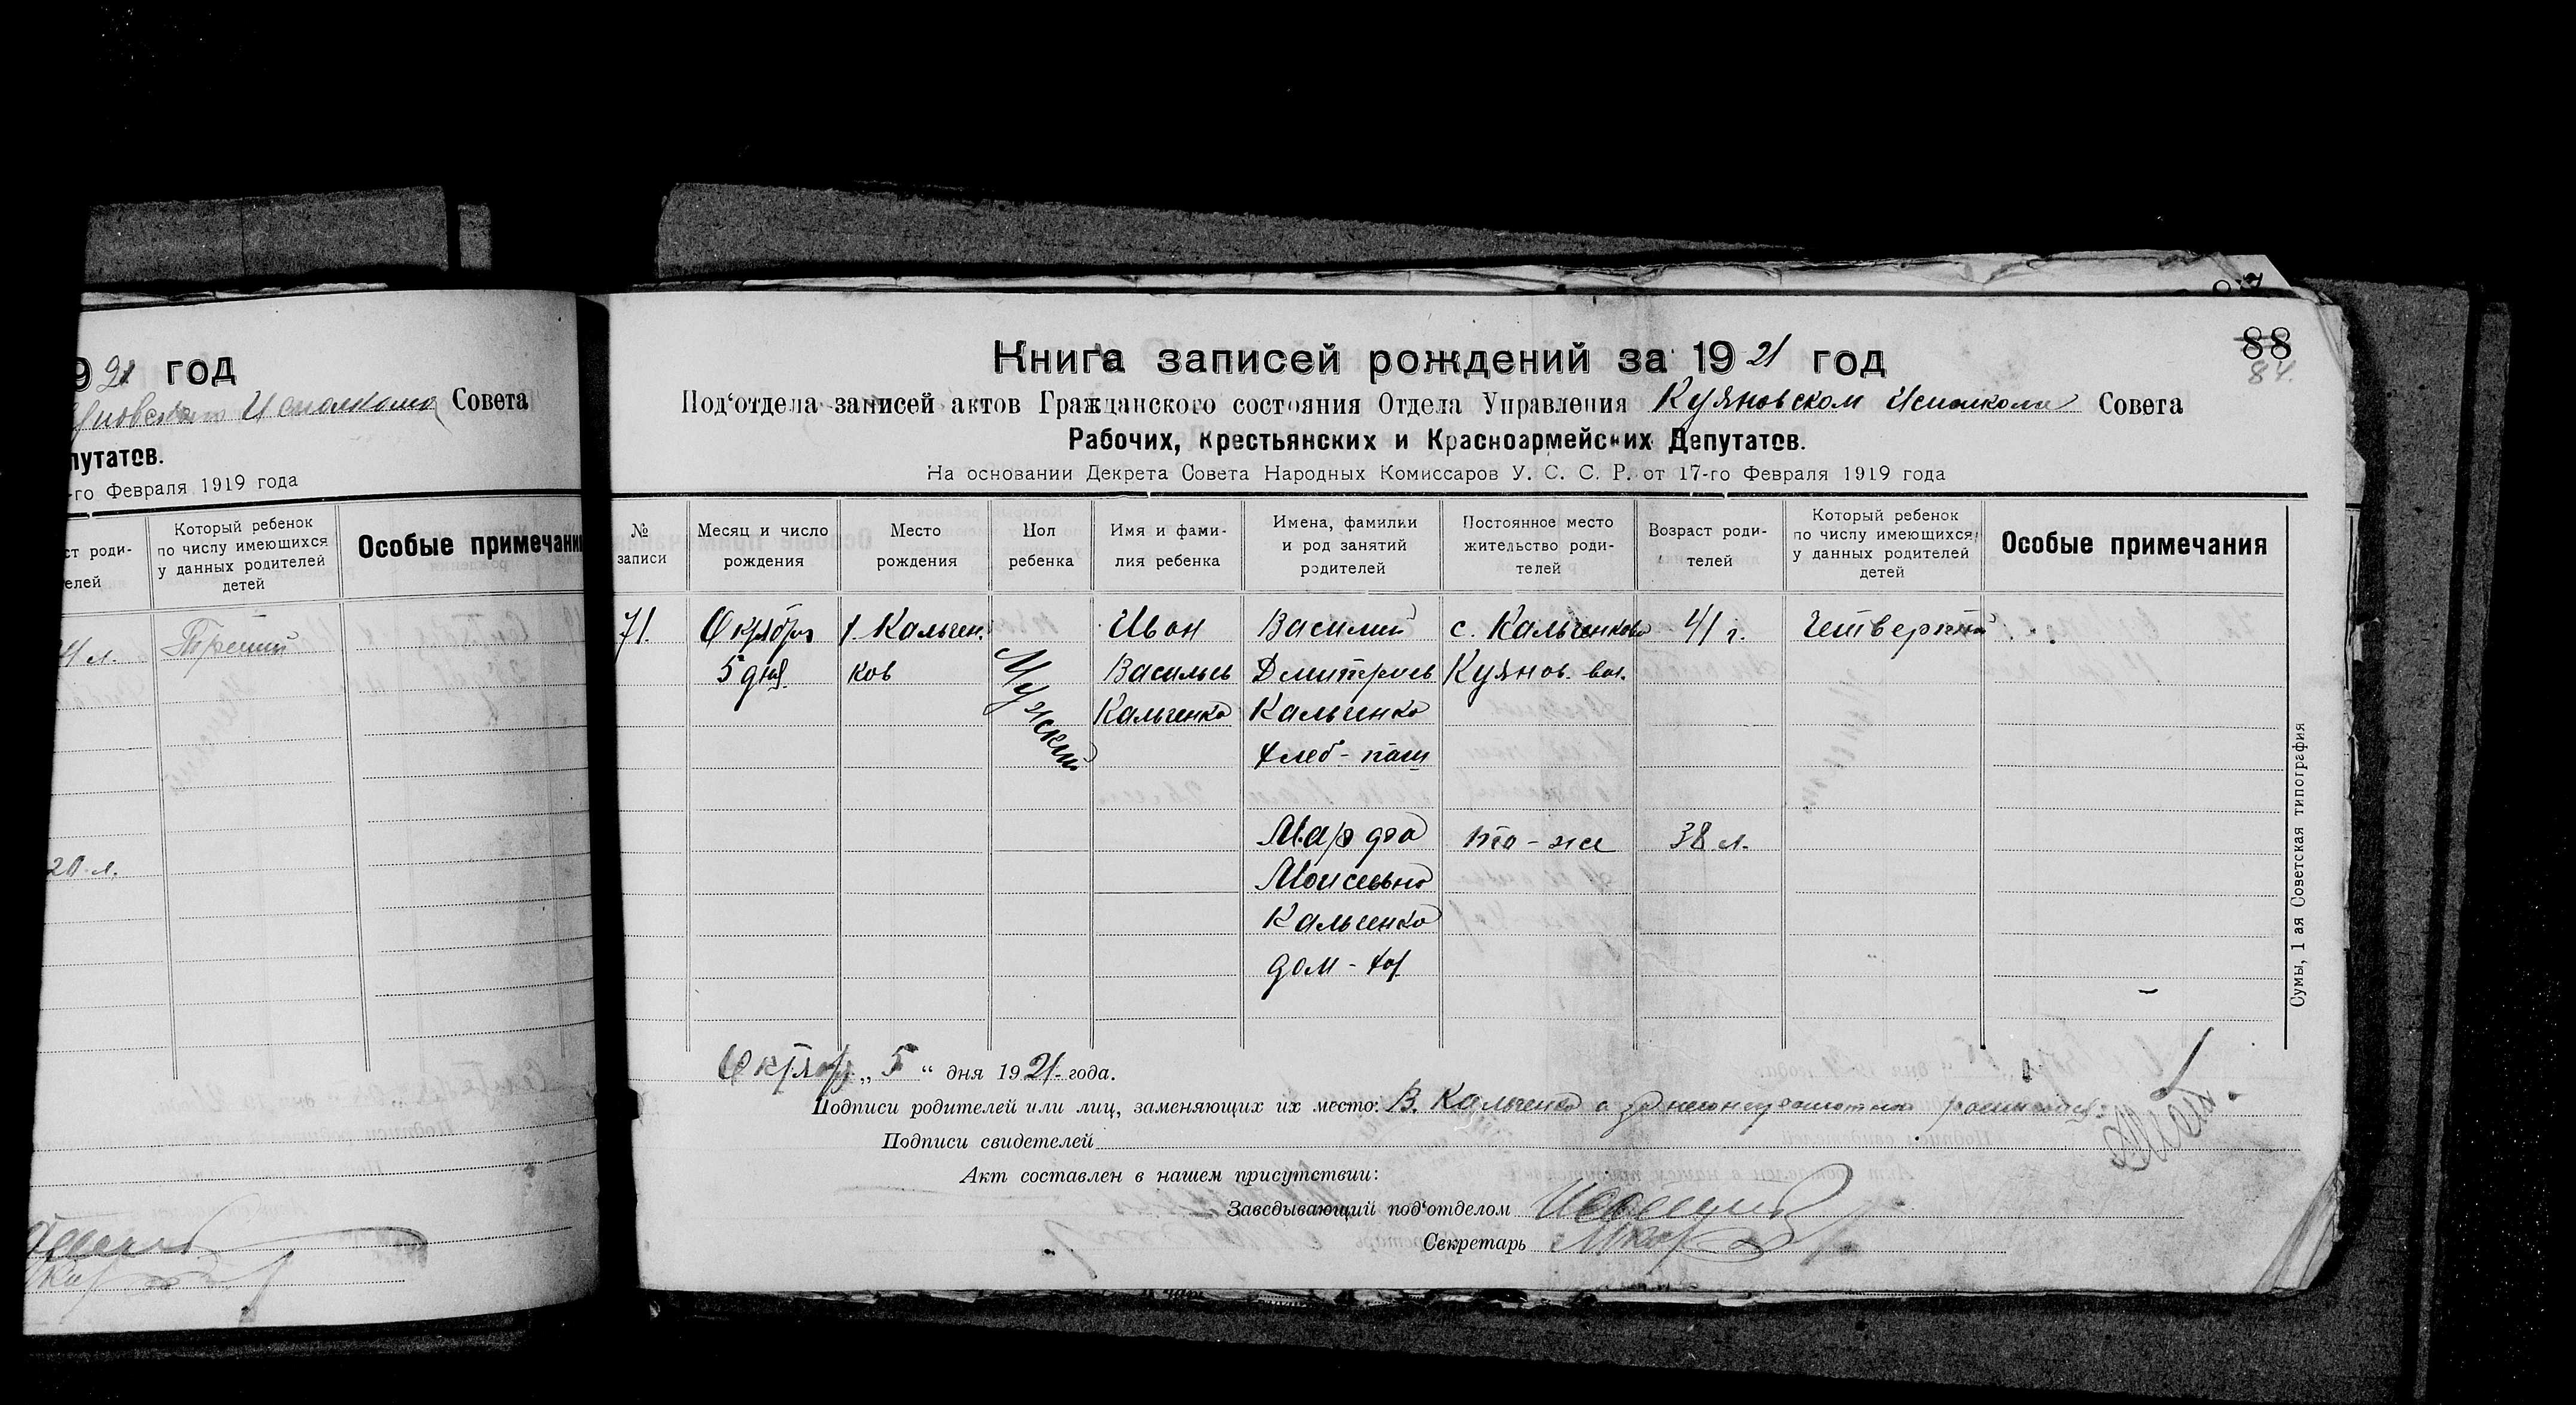 9 21 год
Исполкома Совета
путатов.
-го Февраля 1919 года
ст роди-
телей
Который ребенок
по числу имеющихся
у данных родителей
детей
Особые примечани
л.
Третий
20 л.
88
84.
Книга записей рождений за 19 21 год
Под'отдела записей актов Гражданского состояния Отдела Управления Куяновском Исполкоме Совета
Рабочих, Крестьянских и Красноармейских Депутатов.
На основании Декрета Совета Народных Комиссаров У. С. С. Р. от 17-го Февраля 1919 года
№
записи
Месяц и число
рождения
Место
рождения
Пол
ребенка
Имя и фами-
лия ребенка
Имена, фамилии
и род занятий
родителей
Постоянное место
жительство роди-
телей
Возраст роди-
телей
Который ребенок
по числу имеющихся
у данных родителей
детей
Особые примечания
71.
Октября
5 дня
х. Кальчен.
ков
Мужский
Иван
Васильев
Кальченко
Василий
Дмитриев
Кальченко
хлеб-паш
с. Кальченково
Куянов. вол.
41 г.
Четвертый
Марфа
Моисеевна
Кальченко
дом-хоз
то-же
38 л.
Октября „ 5 “ дня 1921 года.
Подписи родителей или лиц, заменяющих их место: В. Кальченко а за неграмотного расписался
Подписи свидетелей
Акт составлен в нашем присутствии:
Заведывающий под'отделом
Секретарь
Сумы, 1 ая Советская типография